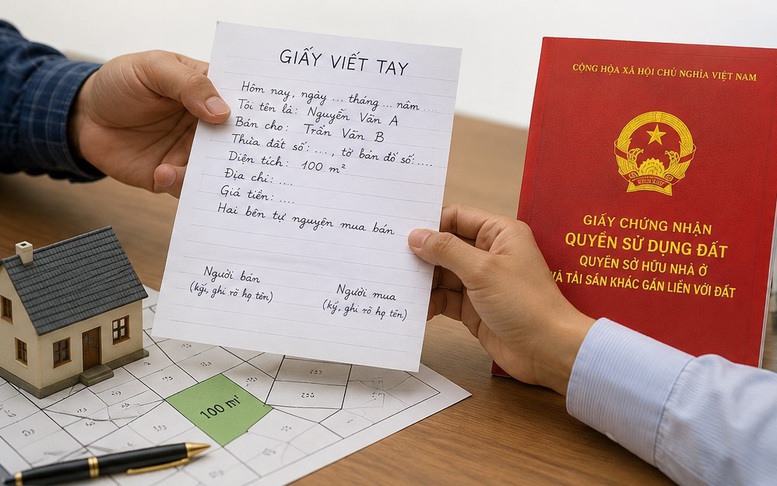 GIẤY VIẾT TAY
Hôm nay, ngày ... tháng ... năm ...
Tôi tên là: Nguyễn Văn A
Bán cho: Trần Văn B
Thửa đất số: ...., tờ bản đồ số: ....
Diện tích: 100 m²
Địa chỉ: ....
Giá tiền: ....
Hai bên tự nguyện mua bán
Người bán
(ký, ghi rõ họ tên)
Người mua
(ký, ghi rõ họ tên)
CỘNG HÒA XÃ HỘI CHỦ NGHĨA VIỆT NAM
GIẤY CHỨNG NHẬN
QUYỀN SỬ DỤNG ĐẤT
QUYỀN SỞ HỮU NHÀ Ở
VÀ TÀI SẢN KHÁC GẮN LIỀN VỚI ĐẤT
100 m²